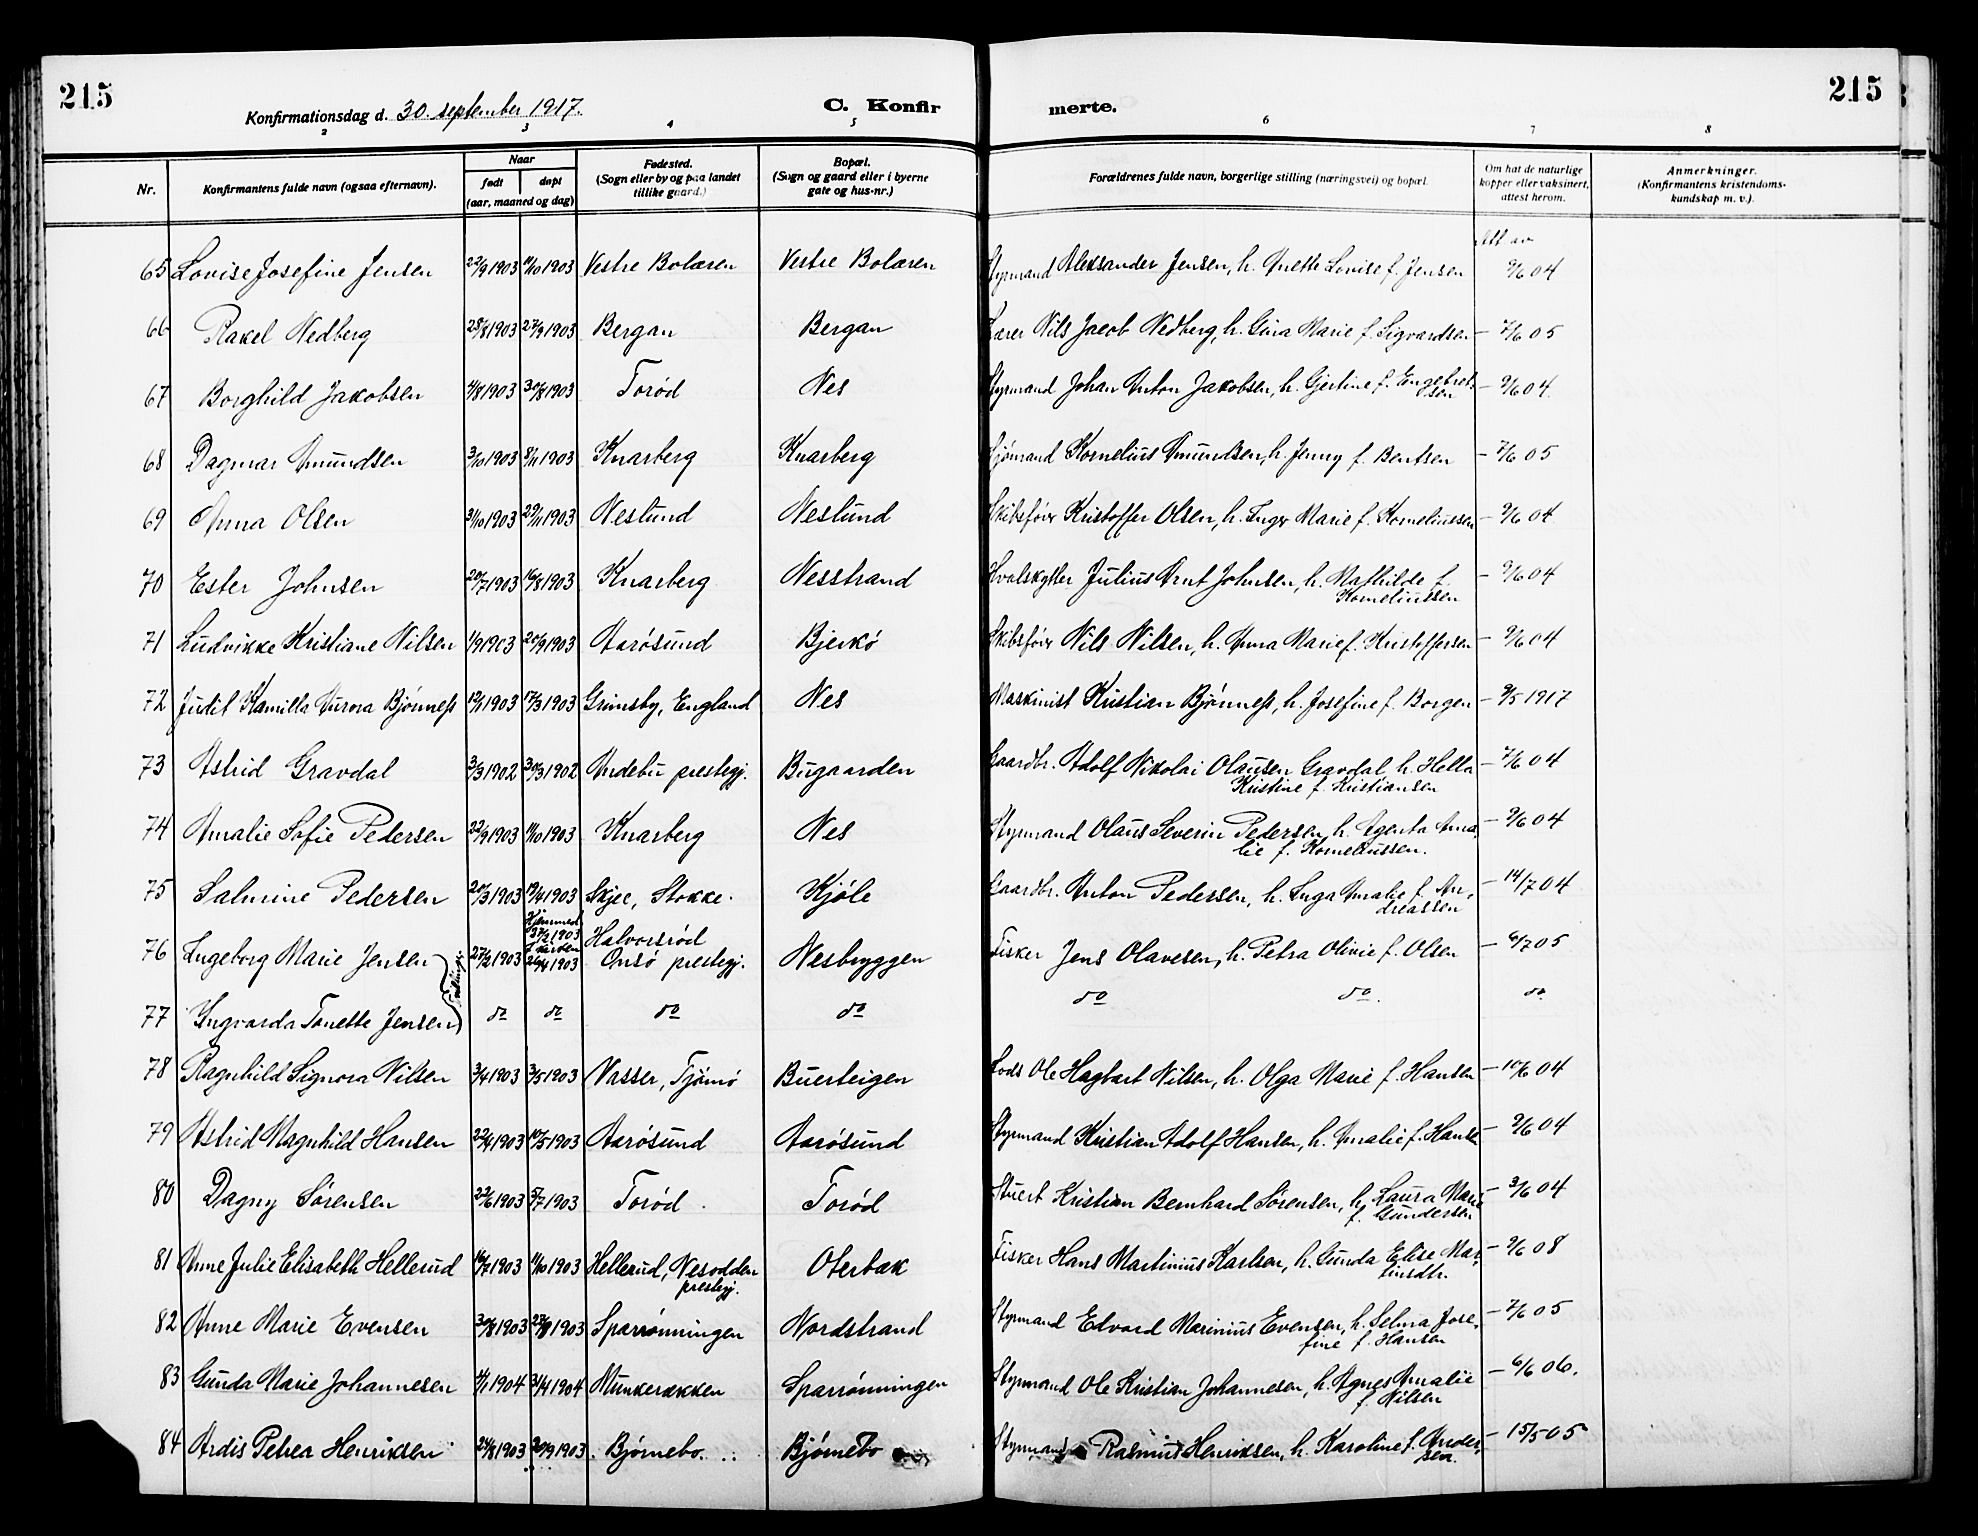 215
Konfirmationsdag d. 30. september 1917.
C. Konfir
merte.
215
2 3 4 5 6 7 8
Nr.
Konfirmantens fulde navn (ogsaa efternavn).
Naar
født døpt
(aar, maaned og dag)
Fødested.
(Sogn eller by og paa landet
tillike gaard.)
Bopæl.
(Sogn og gaard eller i byerne
gate og hus-nr.)
Forældrenes fulde navn, borgerlige stilling (næringsvei) og bopæl.
Om hat de naturlige
kopper eller vaksinert,
attest herom.
Anmerkninger.
(Konfirmantens kristendoms-
kundskap m. v.).
Att av
65 Lovise Josefine Jensen 22/9 1903 11/10 1903 Vestre Bolæren Vestre Bolæren Styrmand Aleksander Jensen, h. Anette Lovise f. Jensen 9/6 04
66 Rakel Nedberg 28/8 1903 27/9 1903 Bergan Bergan Lærer Nils Jacob Nedberg, h. Gina Marie f. Sigvardsen – 7/6 05
67 Borghild Jakobsen 4/8 1903 30/8 1903 Torød Nes Styrmand Johan Anton Jakobsen, h. Gjertine f. Engebret-
sen – 9/6 04.
68 Dagmar Amundsen 3/10 1903 8/11 1903 Knarberg Knarberg Sjømand Kornelius Amundsen, h. Jenny f. Bentsen – 7/6 05
69 Anna Olsen 31/10 1903 29/11 1903 Neslund Neslund Skibsfører Kristoffer Olsen, h. Inger Marie f. Korneliussen – 9/6 04
70 Ester Johnsen 20/7 1903 16/8 1903 Knarberg Nesstrand Hvalskytter Julius Arnt Johnsen, h. Mathilde f.
Korneliussen – 9/6 04
71 Ludvikke Kristiane Nilsen 1/9 1903 20/9 1903 Aarøsund Bjerkø Skibsfører Nils Nilsen, h. Anna Marie f. Kristoffersen – 9/6 04
72 Judit Kamilla Aurora Bjønness 12/1 1903 17/3 1903 Grimsby, England Nes Maskinist Kristian Bjønness, h. Josefine f. Borgen – 9/5 1917
73 Astrid Gravdal 3/3 1902 30/3 1902 Andebu prestegj. Bugaarden Gaardbr. Adolf Nikolai Olausen Gravdal, h. Hella
Kristine f. Kristiansen – 7/6 04
74 Amalie Sofie Pedersen 22/9 1903 11/10 1903 Knarberg Nes Styrmand Olaus Severin Pedersen, h. Agenta Ama-
lie f. Korneliussen. – 9/6 04
75 Salmine Pedersen 20/3 1903 19/4 1903 Skjee, Stokke. Kjøle Gaardbr. Anton Pedersen, h. Inga Amalie f. An-
dreassen – 14/7 04
76 Ingeborg Marie Jensen 27/2 1903 Hjemmed.
27/2 1903
i kirken
26/4 1903 Halvorsrød
Onsø prestegj. Nesbryggen Fisker Jens Olavesen, h. Petra Olivie f. Olsen – 6/7 05
Tvillinger
77 Yngvarda Tonette Jensen do do do do do do. do
78 Ragnhild Signora Nilsen 3/4 1903 3/5 1903 Vasser, Tjømø Buerteigen Lods Ole Hagbart Nilsen, h. Olga Marie f. Hansen – 10/6 04
79 Astrid Magnhild Hansen 22/4 1903 10/5 1903 Aarøsund Aarøsund Styrmand Kristian Adolf Hansen, h. Amalie f. Hansen – 9/6 04
80 Dagny Sørensen 22/6 1903 5/7 1903 Torød. Torød Stuert Kristian Bernhard Sørensen, h. Laura Marie
f. Gundersen – 3/6 04
81 Anne Julie Elisabeth Hellerud 16/7 1903 11/10 1903 Hellerud, Nesodden
prestegj. Oterbæk Fisker Hans Martinius Karlsen, h. Gunda Elise Mar-
tinsdtr. – 9/6 08
82 Anne Marie Evensen 30/8 1903 27/9 1903 Sparrønningen Nordstrand Styrmand Edvard Marinius Evensen, h. Selma Jose-
fine f. Hansen – 7/6 05
83 Gunda Marie Johannesen 4/1 1904 3/4 1904 Munkerækken Sparrønningen Styrmand Ole Kristian Johannesen, h. Agnes Amalie
f. Nilsen – 6/6 06.
84 Ardis Petrea Henriksen 24/8 1903 20/9 1903 Bjørnebo. Bjørnebo Styrmand Rasmus Henriksen, h. Karoline f. Ander-
sen. – 15/5 05